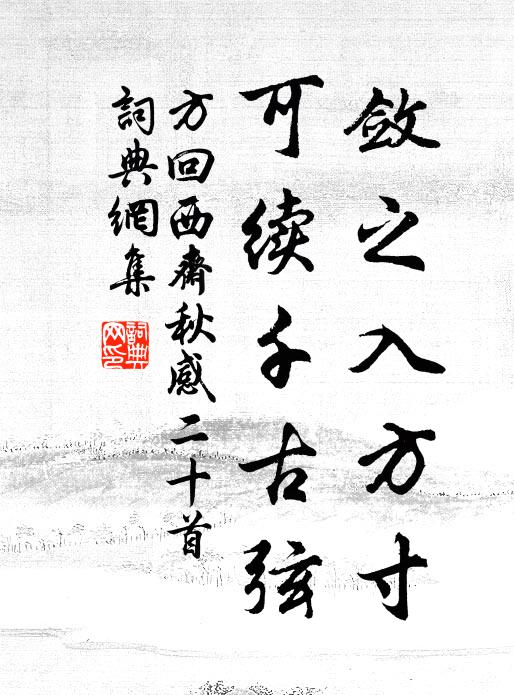 斂之入方寸
可續千古弦
方回西齋秋感二十首
詞典網集
詞典網印